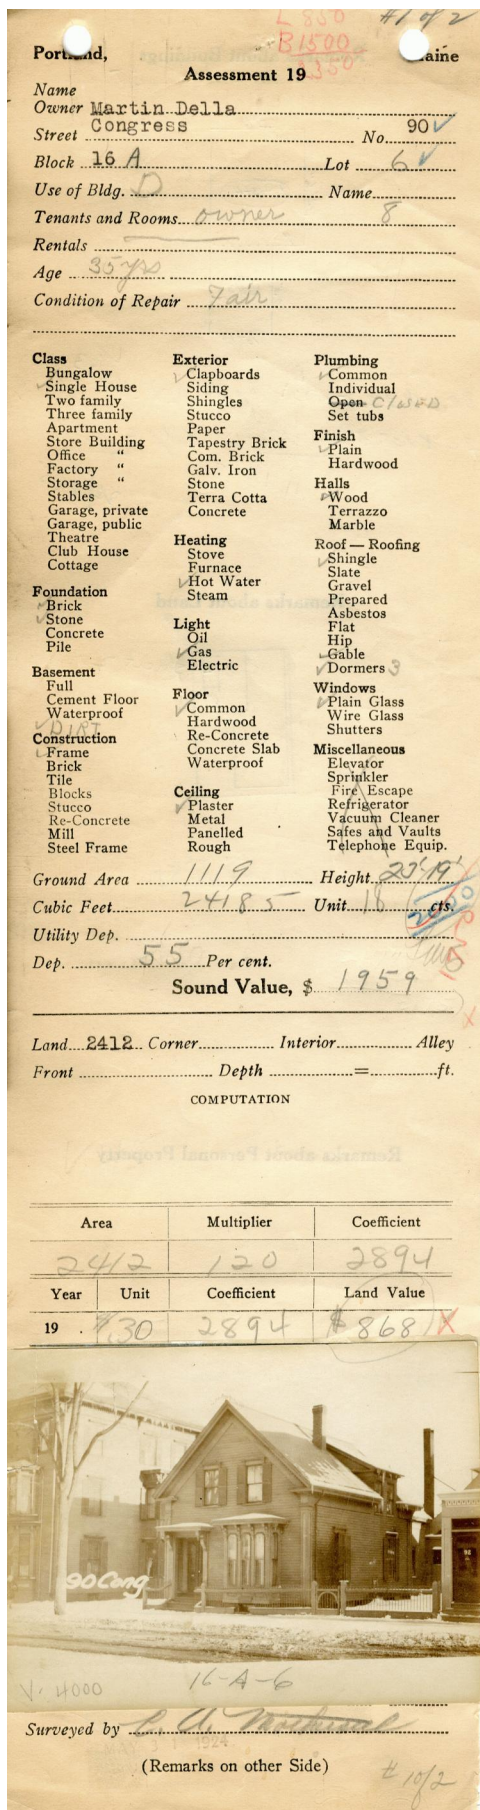 #1 of 2
L 850
B 1500
2350
Portland, Maine
Assessment 19
Name
Owner Martin Della
Street Congress No. 90 ✓
Block 16 A Lot 6 ✓
Use of Bldg. D Name
Tenants and Rooms owner 8
Rentals
Age 35 yrs
Condition of Repair Fair
Class
Bungalow
✓ Single House
Two family
Three family
Apartment
Store Building
Office "
Factory "
Storage "
Stables
Garage, private
Garage, public
Theatre
Club House
Cottage
Foundation
✓ Brick
✓ Stone
Concrete
Pile
Basement
Full
Cement Floor
Waterproof
✓ DIRT
Construction
✓ Frame
Brick
Tile
Blocks
Stucco
Re-Concrete
Mill
Steel Frame
Exterior
✓ Clapboards
Siding
Shingles
Stucco
Paper
Tapestry Brick
Com. Brick
Galv. Iron
Stone
Terra Cotta
Concrete
Heating
Stove
Furnace
✓ Hot Water
Steam
Light
Oil
✓ Gas
Electric
Floor
✓ Common
Hardwood
Re-Concrete
Concrete Slab
Waterproof
Ceiling
✓ Plaster
Metal
Panelled
Rough
Plumbing
✓ Common
Individual
Open CLOSED
Set tubs
Finish
✓ Plain
Hardwood
Halls
✓ Wood
Terrazzo
Marble
Roof — Roofing
✓ Shingle
Slate
Gravel
Prepared
Asbestos
Flat
Hip
✓ Gable
✓ Dormers 3
Windows
✓ Plain Glass
Wire Glass
Shutters
Miscellaneous
Elevator
Sprinkler
Fire Escape
Refrigerator
Vacuum Cleaner
Safes and Vaults
Telephone Equip.
Ground Area 1119 Height 22'-19'
Cubic Feet 24185 Unit 18 cts.
Utility Dep.
Dep. 55 Per cent.
Sound Value, $ 1959
Land 2412 Corner Interior Alley
Front Depth = ft.
COMPUTATION
Area Multiplier Coefficient
2412 120 2894
Year Unit Coefficient Land Value
19 .30 2894 $868 X
90 Cong
V. 4000
16-A-6
Surveyed by
1924
(Remarks on other Side)
# 1 of 2